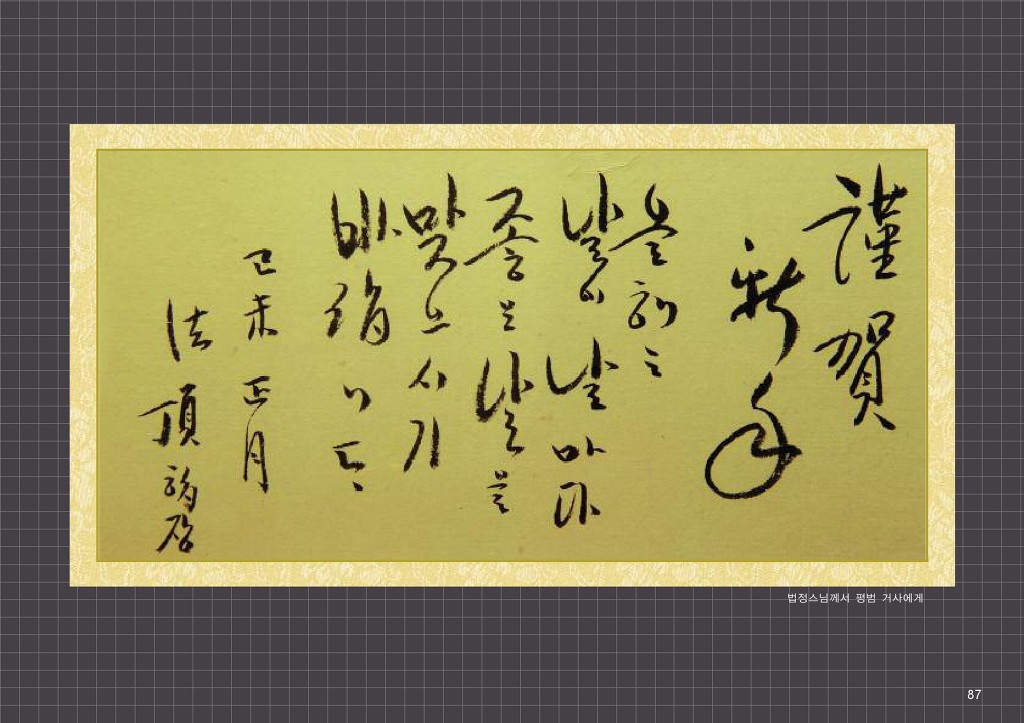 謹賀
新年
올해는
날이 날마다
좋은 날을
맞으시기
바랍니다
己未 正月
法頂
법정스님께서 평범 거사에게
87